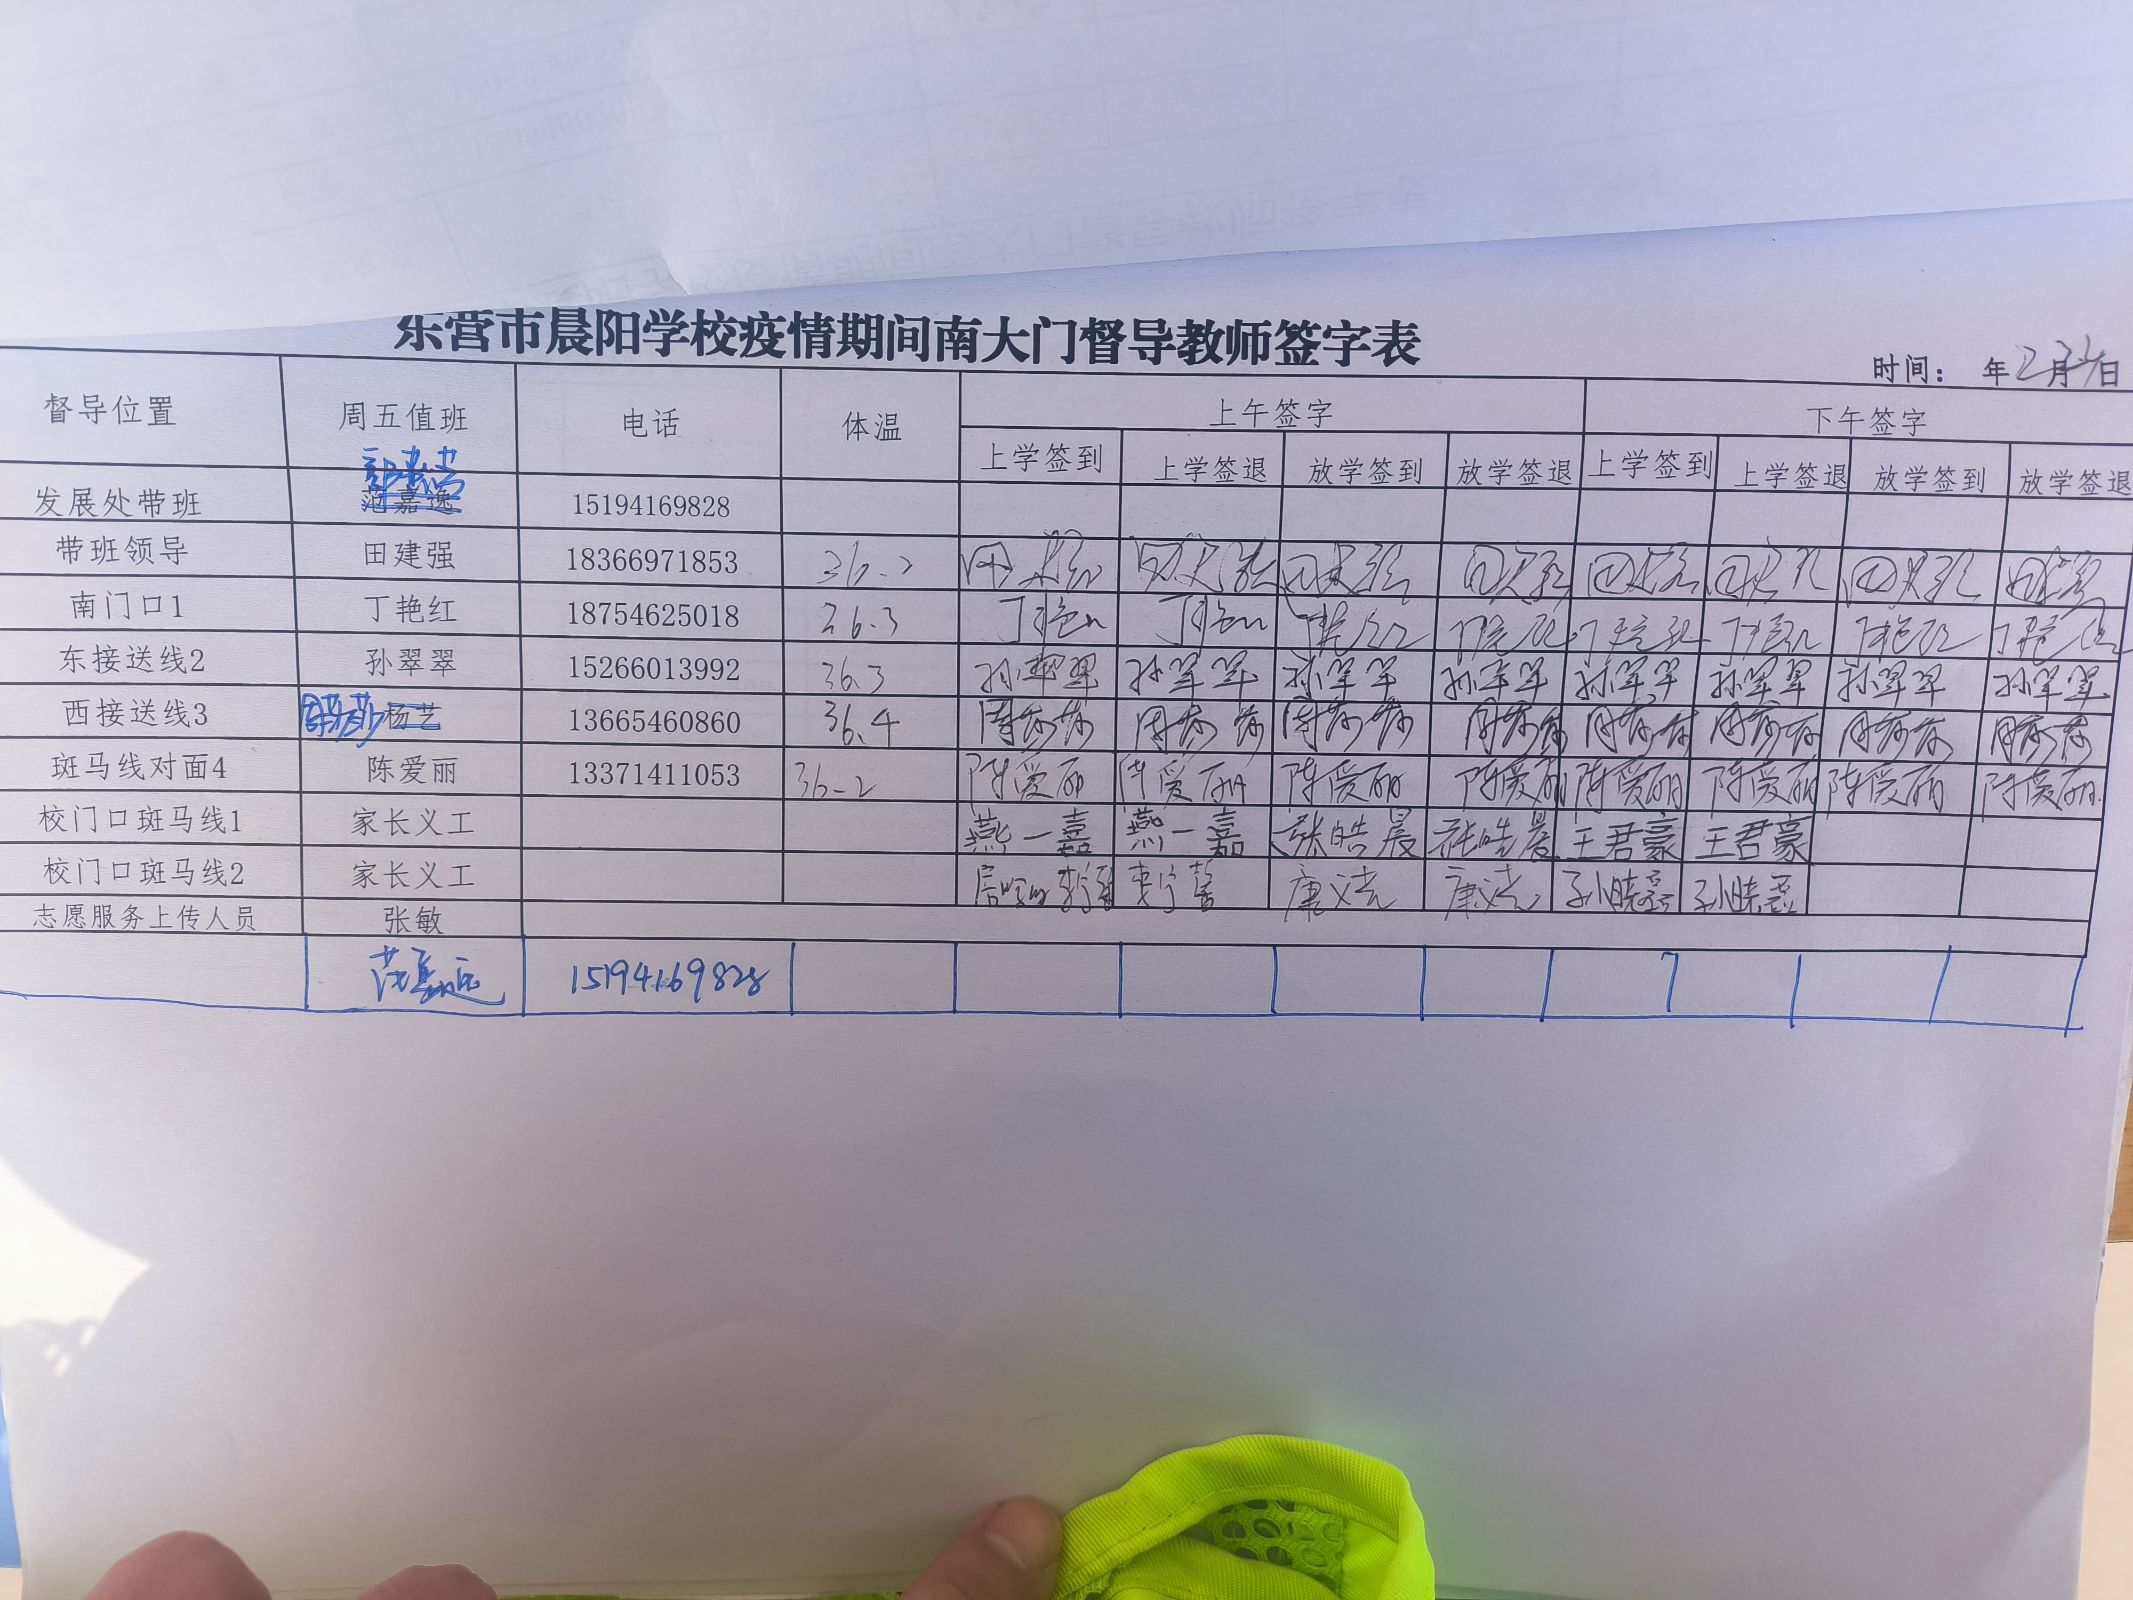 东营市晨阳学校疫情期间南大门督导教师签字表
时间： 年2月 日
督导位置 周五值班 电话 体温 上午签字 下午签字
上学签到 上学签退 放学签到 放学签退 上学签到 上学签退 放学签到 放学签退
发展处带班 范嘉逸 15194169828
带班领导 田建强 18366971853 36.2
南门口1 丁艳红 18754625018 36.3 丁艳红 丁艳红 丁艳红 丁艳红 丁艳红 丁艳红 丁艳红 丁艳红
东接送线2 孙翠翠 15266013992 36.3 孙翠翠 孙翠翠 孙翠翠 孙翠翠 孙翠翠 孙翠翠 孙翠翠 孙翠翠
西接送线3 杨艺 13665460860 36.4
斑马线对面4 陈爱丽 13371411053 36.2 陈爱丽 陈爱丽 陈爱丽 陈爱丽 陈爱丽 陈爱丽 陈爱丽 陈爱丽
校门口斑马线1 家长义工 燕一嘉 燕一嘉 张皓晨 张皓晨 王君豪 王君豪
校门口斑马线2 家长义工
志愿服务上传人员 张敏
范嘉逸 15194169828